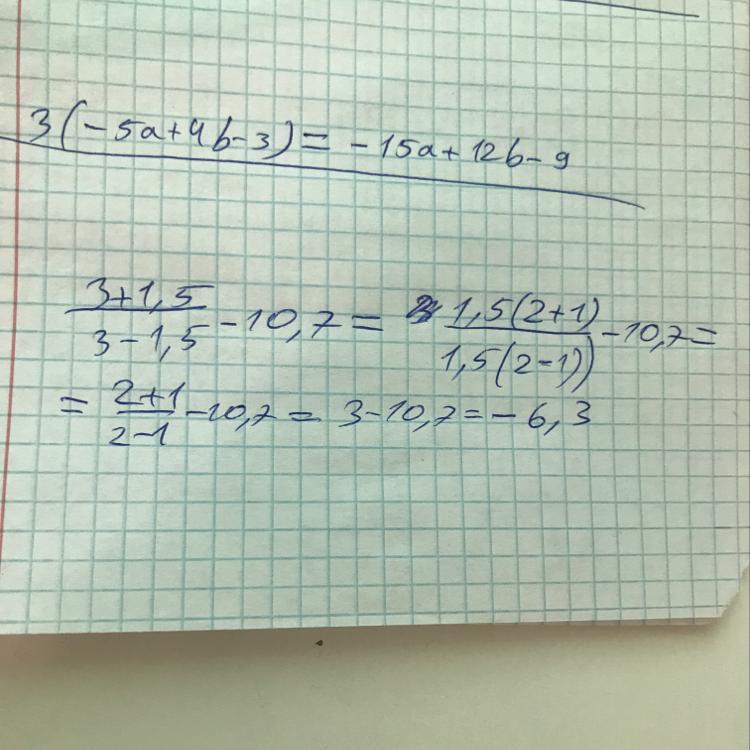 3(-5a+4b-3)=-15a+12b-9
3+1,5/3-1,5 -10,7= 1,5(2+1)/1,5(2-1)) -10,7=
= 2+1/2-1 -10,7= 3-10,7=-6,3